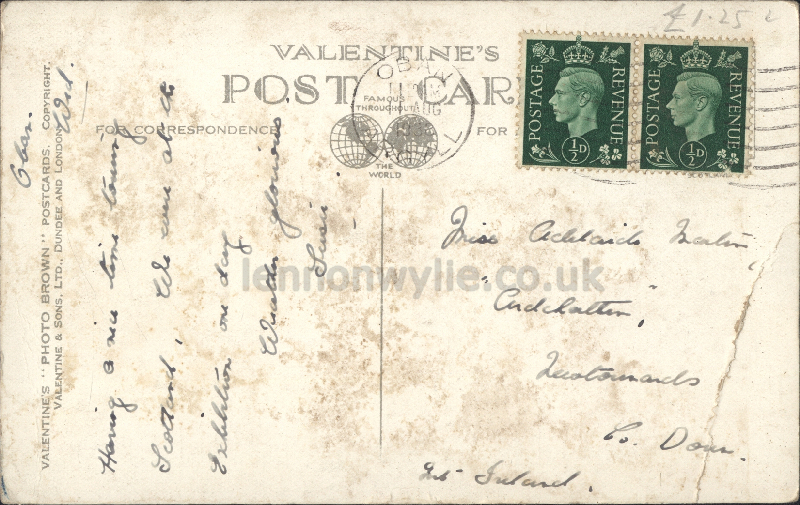 £1.25
VALENTINE'S
POST CARD
FAMOUS
THROUGHOUT
THE
WORLD
FOR CORRESPONDENCE
FOR
OBAN
AUG
1938
POSTAGE
REVENUE
½D
POSTAGE
REVENUE
½D
VALENTINE'S "PHOTO BROWN" POSTCARDS. COPYRIGHT.
VALENTINE & SONS, LTD., DUNDEE AND LONDON
Oban.
Wed.
Having a nice time touring
Scotland. We were at the
Exhibition one day
Weather glorious.
Susie
Miss Adelaide Martin
"Ardchattan",
Newtownards
Co. Down.
Ireland.
lennonwylie.co.uk